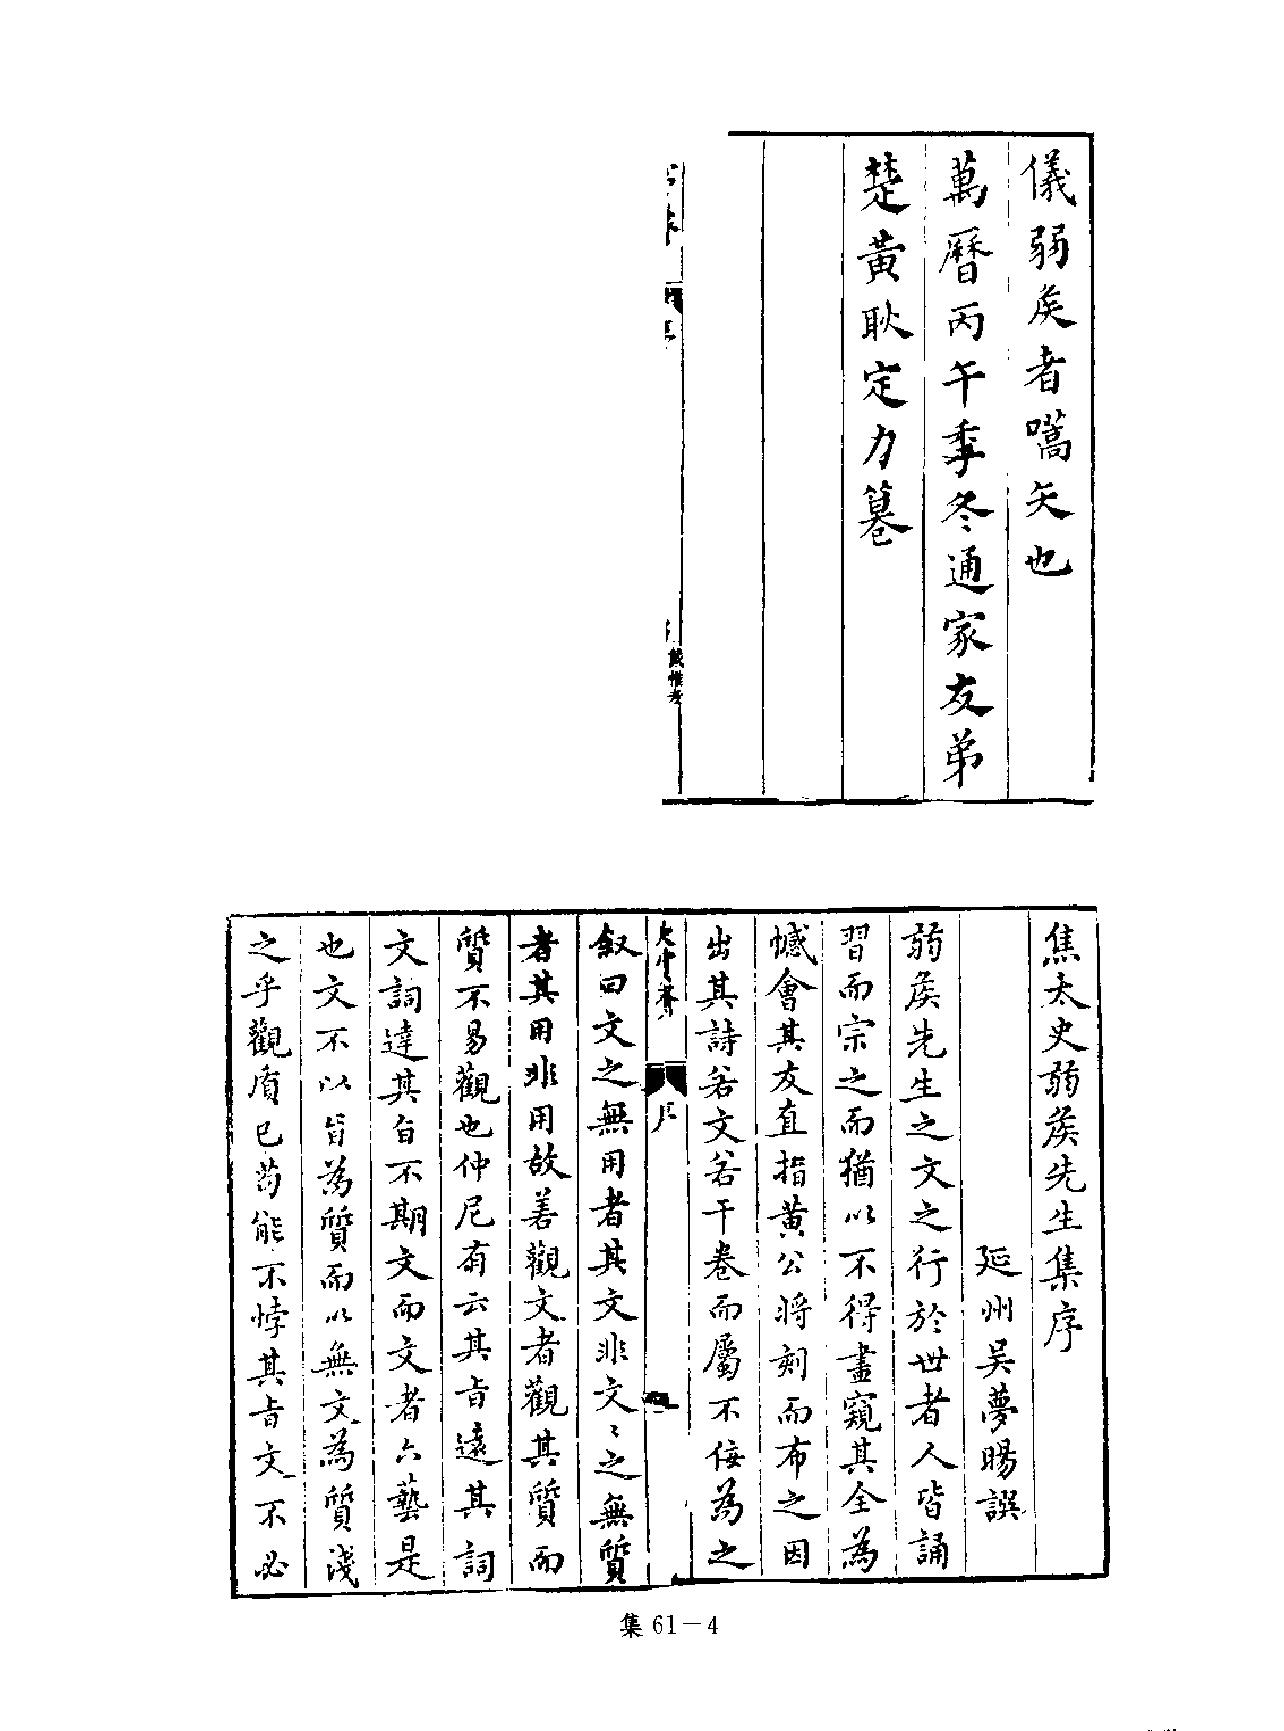 儀弱矦者嚆矢也
萬曆丙午季冬通家友弟
楚黃耿定力
戴惟孝
焦太史弱矦先生集序
延州吳夢暘譔
弱矦先生之文之行於世者人皆誦
習而宗之而猶以不得盡窺其全為
憾會其友直指黃公將刻而布之因
出其詩若文若干卷而屬不佞為之
序
叙曰文之無用者其文非文〻之無質
者其用非用故善觀文者觀其質而
質不易觀也仲尼有云其旨遠其詞
文詞達其旨不期文而文者六藝是
也文不以旨為質而以無文為質淺
之乎觀質已苟能不悖其旨文不必
集 61－4